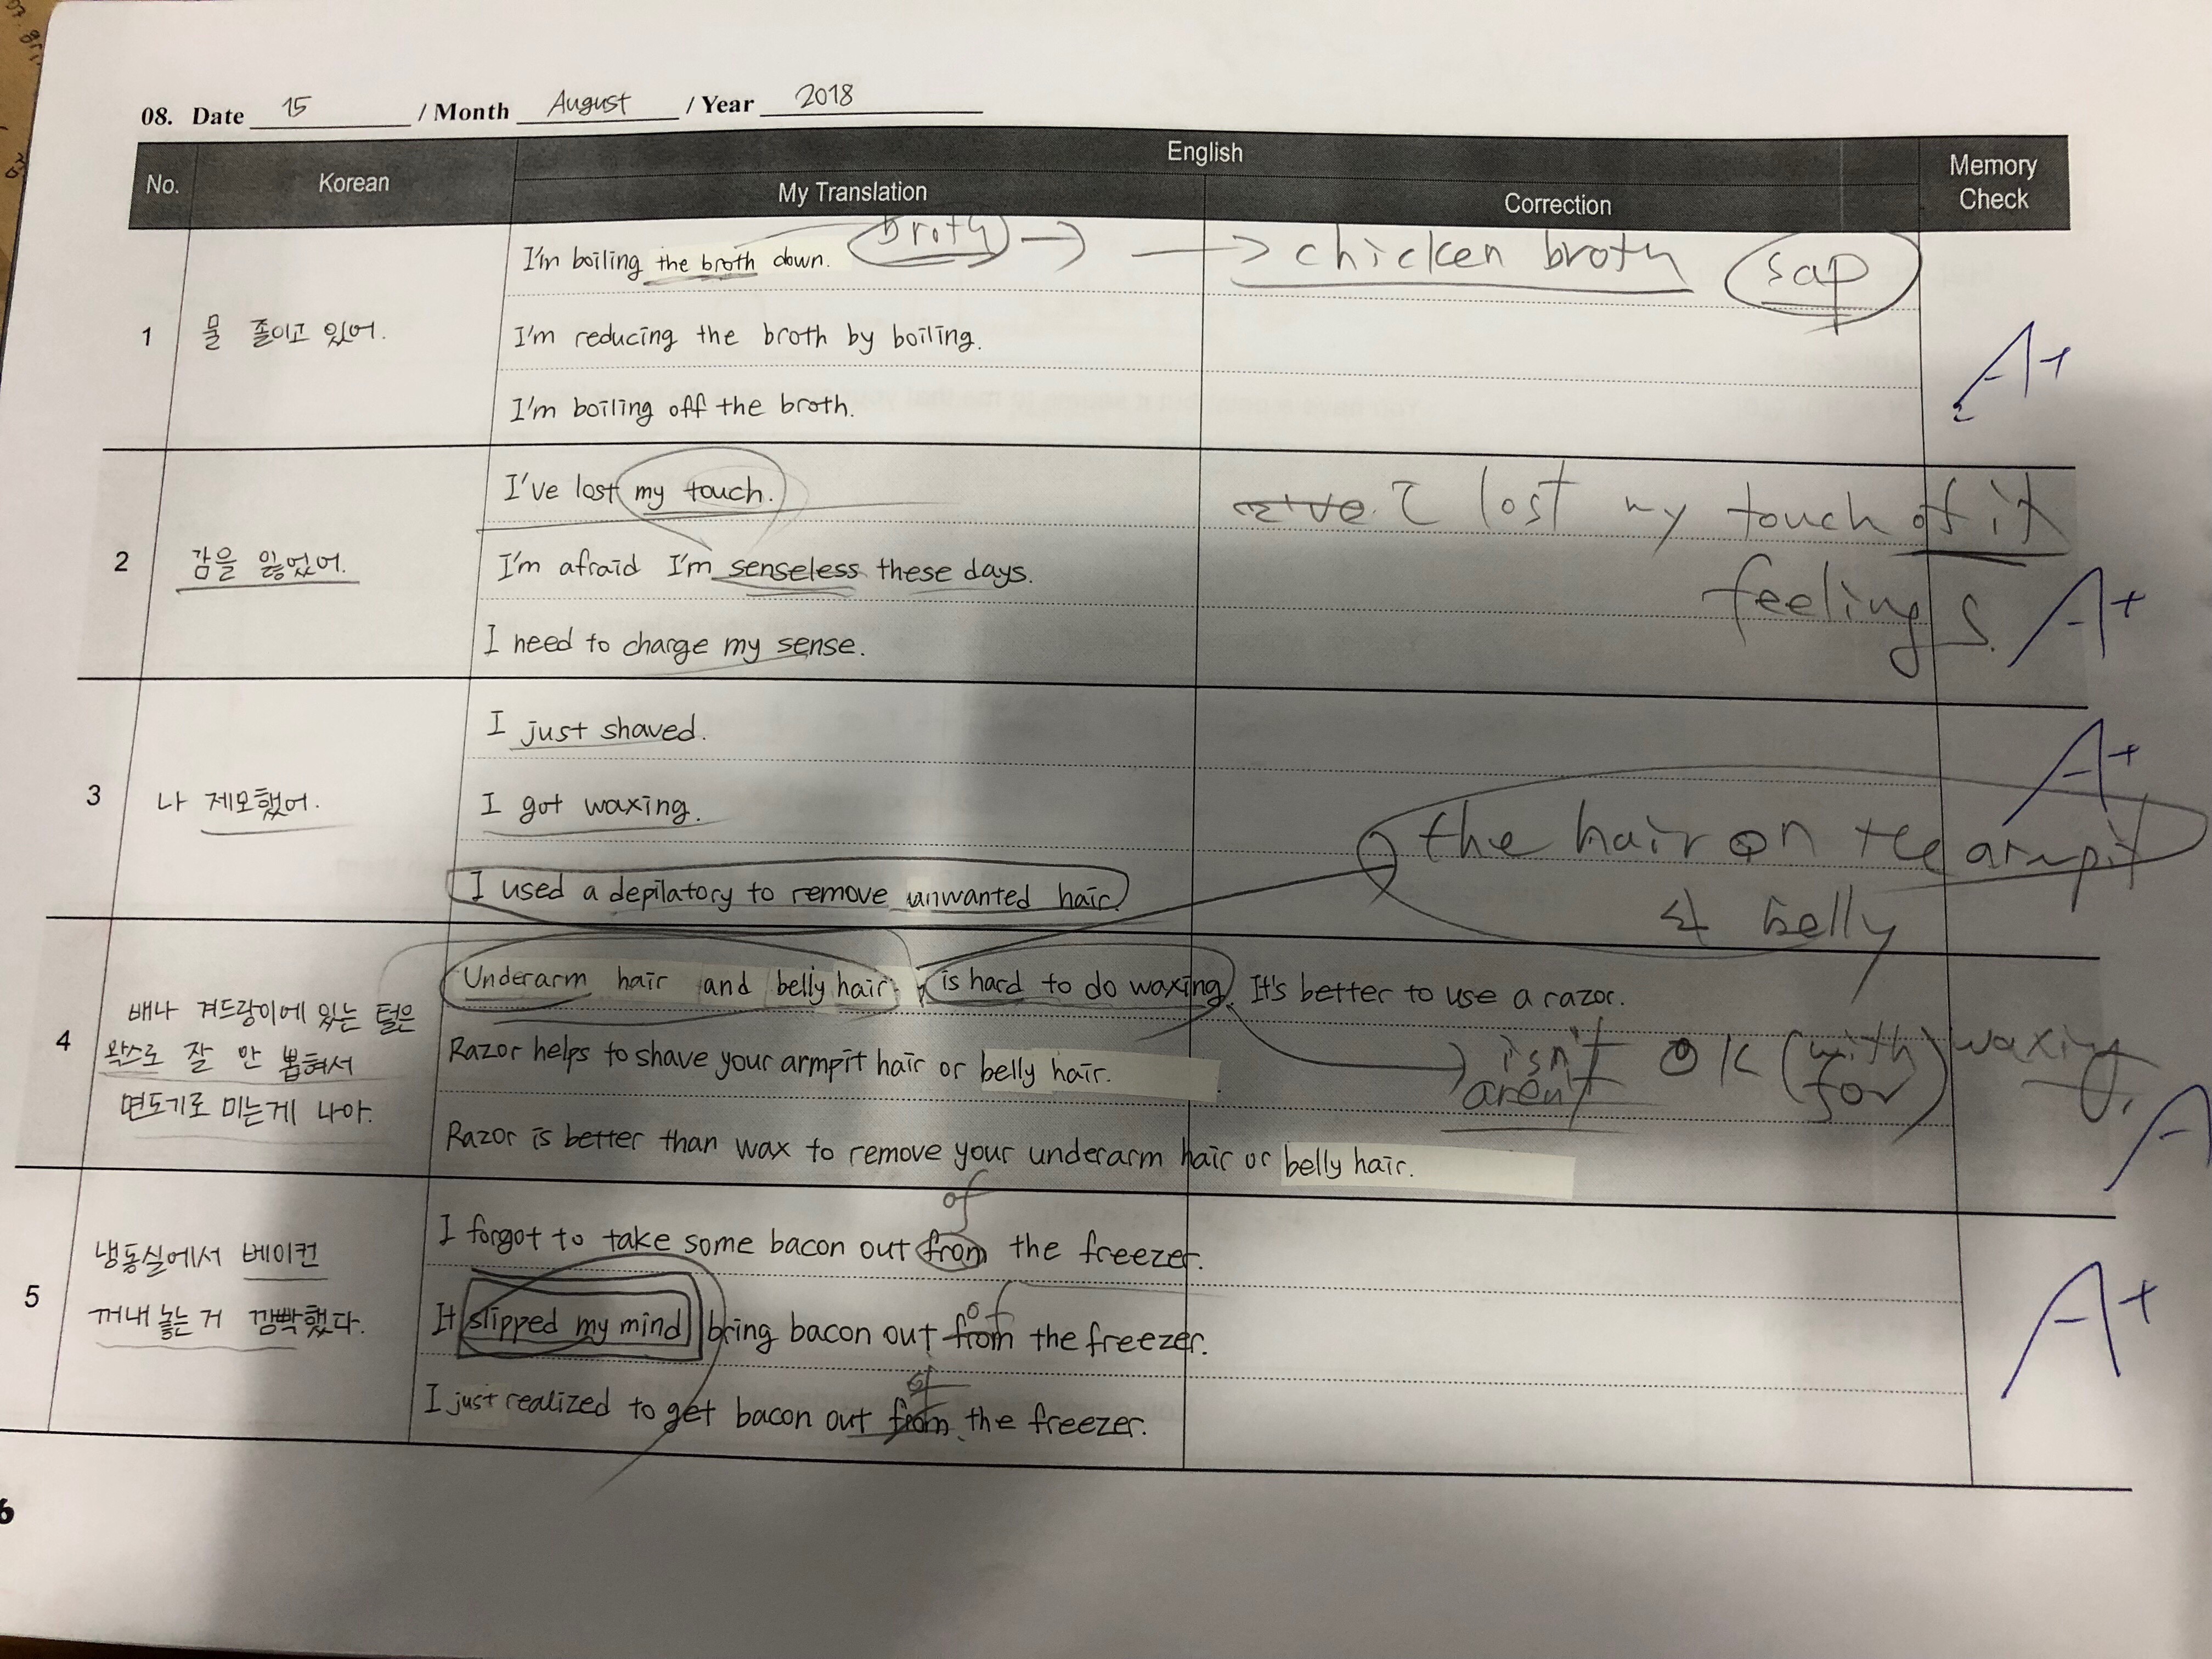 08. Date 15 / Month August / Year 2018
No. Korean English Memory Check
My Translation Correction
1 물 졸이고 있어.
I'm boiling the broth down. broth → → chicken broth sap
I'm reducing the broth by boiling.
I'm boiling off the broth.
A+
2 감을 잃었어.
I've lost my touch. I've I lost my touch of it
feelings.
I'm afraid I'm senseless these days.
I need to charge my sense.
A+
3 나 제모했어.
I just shaved.
I got waxing.
I used a depilatory to remove unwanted hair.
the hair on the armpit
& belly
A+
4 배나 겨드랑이에 있는 털은
왁스로 잘 안 뽑혀서
면도기로 미는게 나아.
Underarm hair and belly hair is hard to do waxing. It's better to use a razor.
isn't OK (with) waxing.
aren't (for)
Razor helps to shave your armpit hair or belly hair.
Razor is better than wax to remove your underarm hair or belly hair.
A
5 냉동실에서 베이컨
꺼내 놓는 거 깜빡했다.
of
I forgot to take some bacon out from the freezer.
of
It slipped my mind bring bacon out from the freezer.
of
I just realized to get bacon out from the freezer.
A+
6